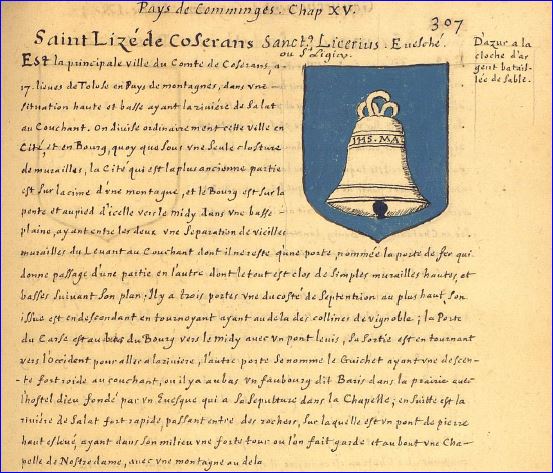 Pays de Comminges. Chap XV.
307
Saint Lizé de Coserans Sanct9 Licerius. Euesché.
ou St Ligier
D'azur a la
cloche d'ar
gent batail-
lée de sable.
Est la principale ville du Comté de Coserans, a
17. lieues de Tolose en Pays de montagnes, dans vne
situation haute et basse ayant la riuière de Salat
au Couchant. On diuise ordinairement cette ville en
Cité, et en Bourg, quoy que sous vne seule closture
de murailles, la Cité qui est la plus ancienne partie
est sur la cime d'vne montagne, et le Bourg est sur la
pente et au pied d'icelle vers le midy dans vne basse
plaine, ayant entre les deux vne separation de vieilles
murailles du Leuant au Couchant dont il ne reste qu'une porte, nommée la porte de fer qui
donne passage d'une partie en l'autre dont le tout est clos de simples murailles hautes, et
basses suiuant son plan; Il y a trois portes vne du costé de Septention au plus haut, son
issue est en descendant en tournoyant ayant au dela des collines de vignoble; la Porte
du Carse est au bas du Bourg vers le midy auec vn pont leuis, sa sortie est en tournant
vers l'occident pour aller a la riuiere; l'autre porte se nomme le Guichet ayant vne descen-
te fort roide au couchant, ou il y a au bas vn faubourg dit Baris dans la prairie auec
l'hostel dieu fondé par vn Euesque qui a sa sepulture dans la Chapelle; en suitte est la
riuière de Salat fort rapide, passant entre des rochers, sur laquelle est vn pont de pierre
haut esleué, ayant dans son milieu vne forte tour ou l'on fait garde et au bout vne Cha-
pelle de Nostre dame, auec vne montagne au dela
IHS. MA